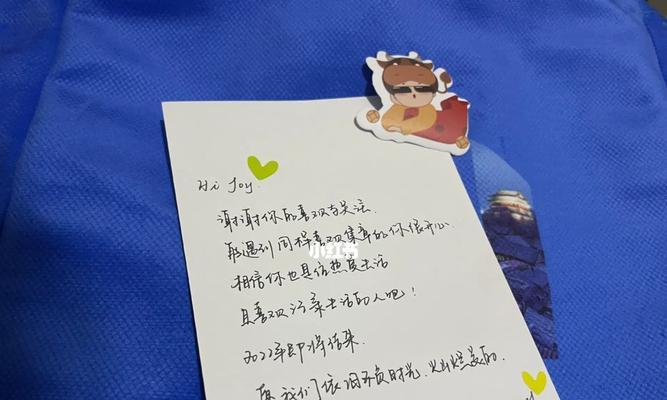 Hi Joy.
谢谢你的喜欢与关注.
能遇到同样喜欢集章的你很开心.
小红书
相信你也是位热爱生活
且喜欢记录生活的人吧！
2022年即将结束.
愿我们依旧不负时光.